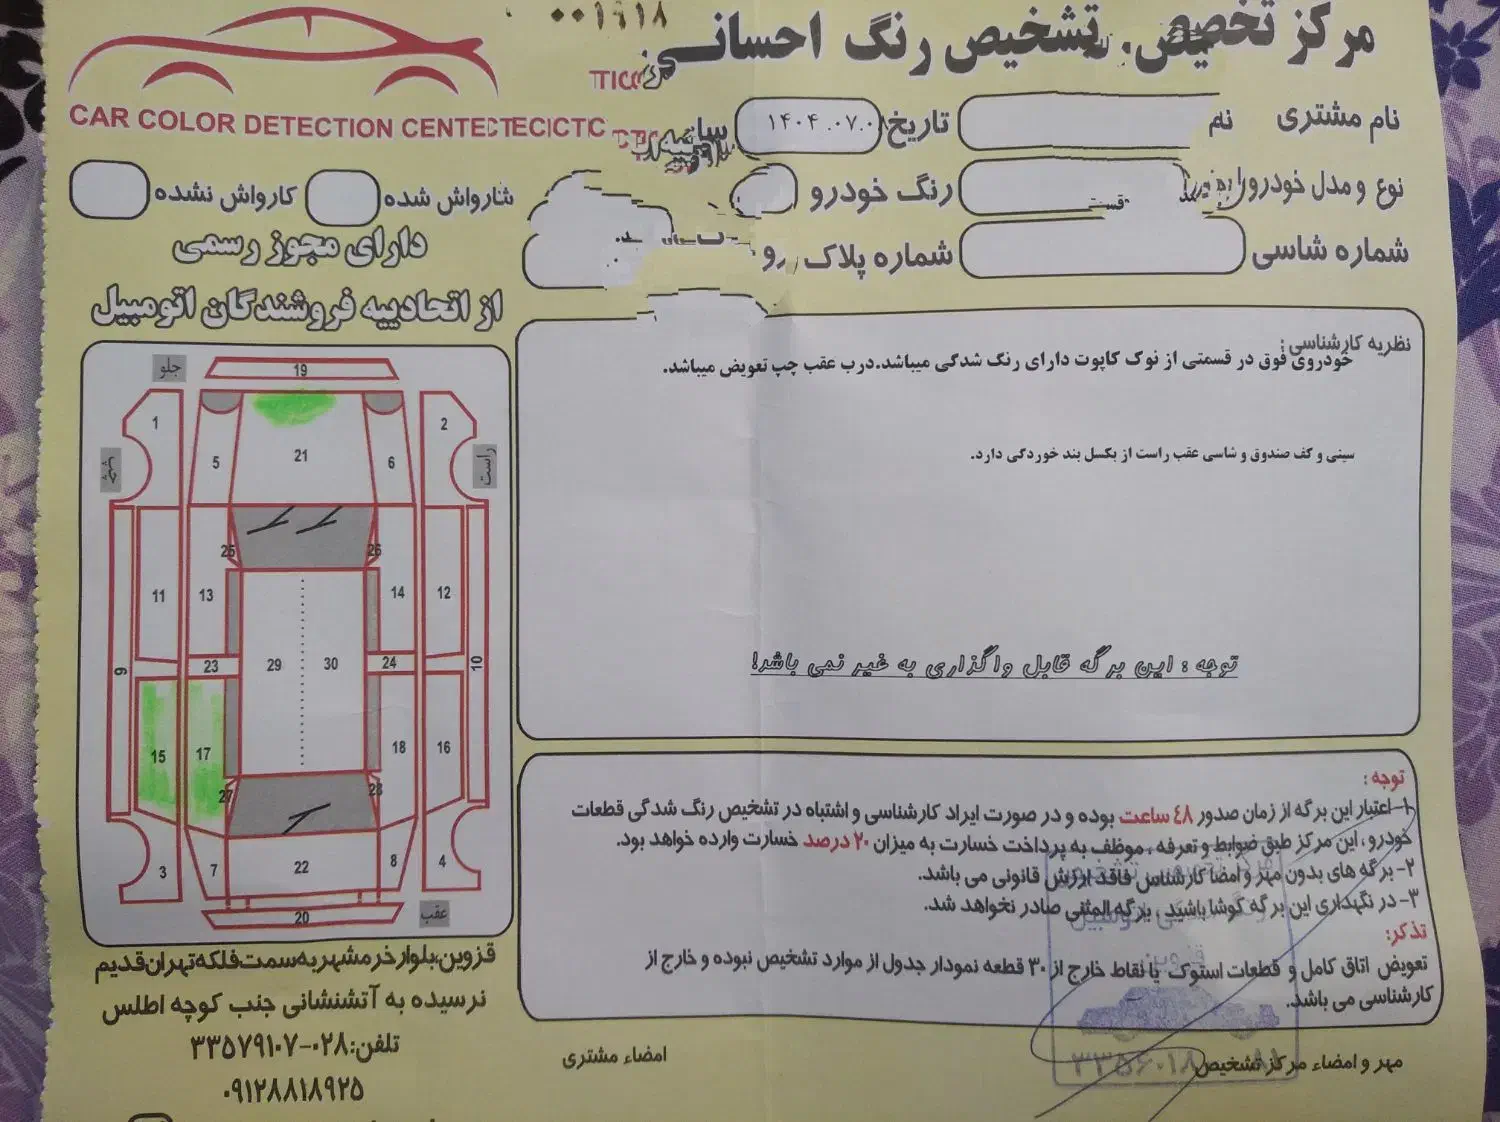 ۰۰۱۹۱۸
مرکز تخصصی تشخیص رنگ احسانی
CAR COLOR DETECTION CENTE
نام مشتری
تاریخ ۱۴۰۴.۰۷.۰۸
نوع و مدل خودرو
رنگ خودرو
شماره شاسی
شماره پلاک
کارواش نشده
دارای مجوز رسمی
از اتحادییه فروشندگان اتومبیل
نظریه کارشناسی :
خودروی فوق در قسمتی از نوک کاپوت دارای رنگ شدگی میباشد.درب عقب چپ تعویض میباشد.
سینی و کف صندوق و شاسی عقب راست از بکسل بند خوردگی دارد.
توجه : این برگه قابل واگذاری به غیر نمی باشد!
جلو
راست
عقب
19
1
2
5
21
6
25
26
11
13
14
12
9
23
29
30
24
10
15
17
18
16
27
28
3
7
22
8
4
20
توجه :
۱-اعتبار این برگه از زمان صدور ۴۸ ساعت بوده و در صورت ایراد کارشناسی و اشتباه در تشخیص رنگ شدگی قطعات
خودرو ، این مرکز طبق ضوابط و تعرفه ، موظف به پرداخت خسارت به میزان ۲۰ درصد خسارت وارده خواهد بود.
۲- برگه های بدون مهر و امضا کارشناس فاقد ارزش قانونی می باشد.
۳- در نگهداری این برگه کوشا باشید ، برگه المثنی صادر نخواهد شد.
تذکر:
تعویض اتاق کامل و قطعات استوک یا نقاط خارج از ۳۰ قطعه نمودار جدول از موارد تشخیص نبوده و خارج از
کارشناسی می باشد.
مهر و امضاء مرکز تشخیص
امضاء مشتری
قزوین،بلوار خرمشهر به سمت فلکه تهران قدیم
نرسیده به آتشنشانی جنب کوچه اطلس
تلفن:۰۲۸-۳۳۵۷۹۱۰۷
۰۹۱۲۸۸۱۸۹۲۵